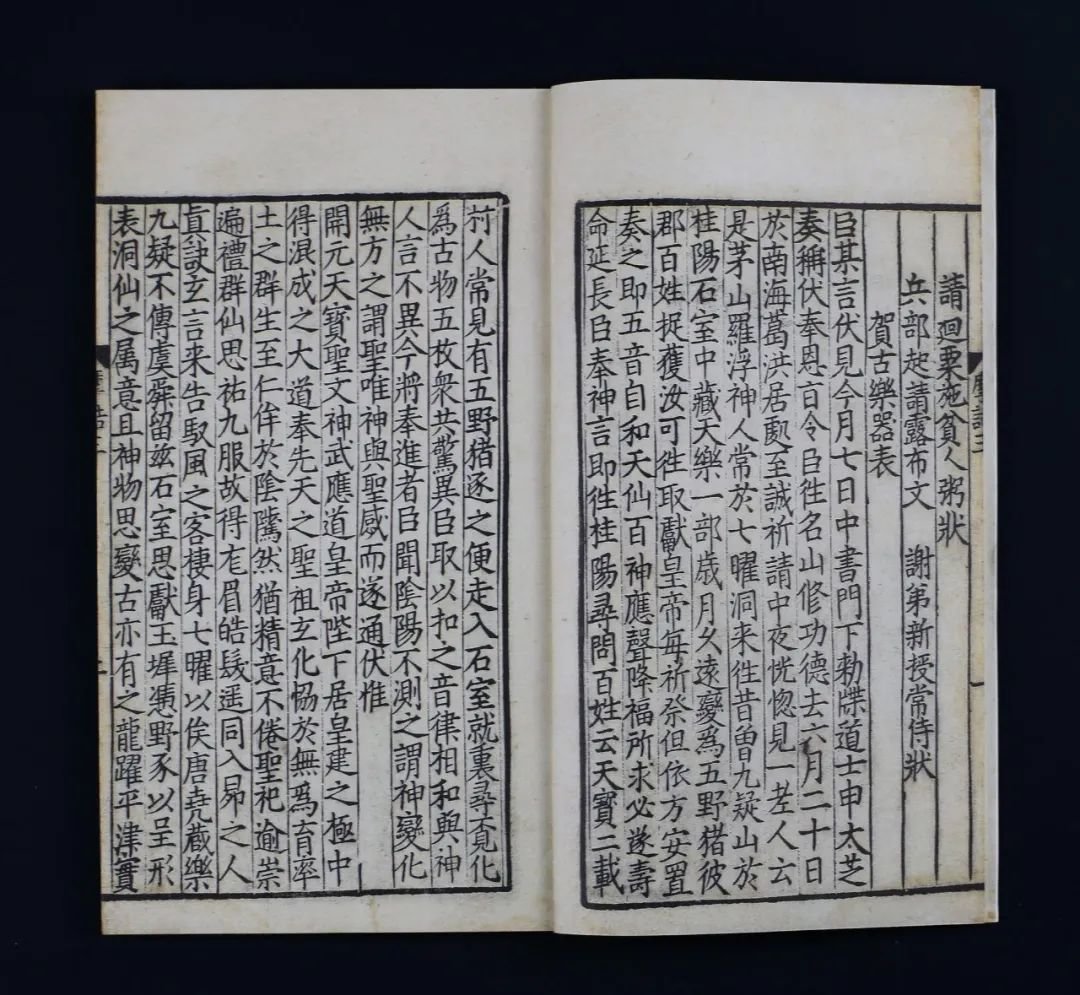 請廻粟施貧人粥狀
兵部起請露布文　謝弟新授常侍狀
賀古樂器表
臣某言伏見今月七日中書門下勑牒道士申太芝
奏稱伏奉恩旨令臣徃名山修功德去六月二十日
於南海葛洪居處至誠祈請中夜恍惚見一老人云
是茅山羅浮神人常於七曜洞来徃昔曾九疑山於
桂陽石室中藏天樂一部歲月乆遠變爲五野猪彼
郡百姓捉獲汝可徃取獻皇帝每祈祭但依方安置
奏之即五音自和天仙百神應聲降福所求必遂壽
命延長臣奉神言即徃桂陽尋問百姓云天寳二載
村人常見有五野猪逐之便走入石室就裏尋覔化
爲古物五枚衆共驚異臣取以扣之音律相和與神
人言不異今將奉進者臣聞陰陽不測之謂神變化
無方之謂聖唯神與聖感而遂通伏惟
開元天寶聖文神武應道皇帝陛下居皇建之極中
得混成之大道奉先天之聖祖玄化恊於無爲育率
土之群生至仁侔於陰騭然猶精意不倦聖祀逾崇
遍禮群仙思祐九服故得厖眉皓髮遥同入昴之人
真訣玄言来告馭風之客棲身七曜以俟唐堯藏樂
九疑不傳虞舜留兹石室思獻玉墀憑野豕以呈形
表洞仙之属意且神物思變古亦有之龍躍平津實